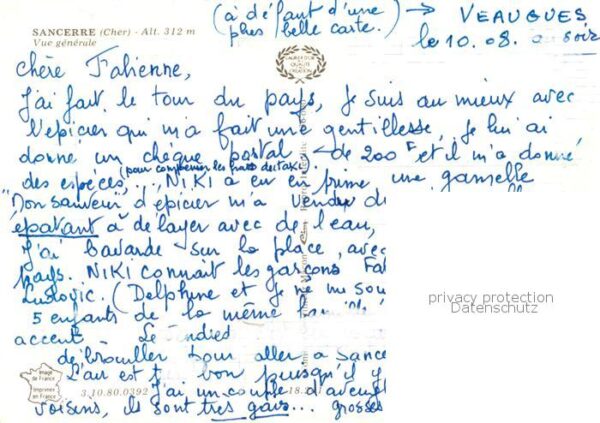 (à défaut d'une
plus belle carte.) → VEAUGUES
le 10.08. au soir
SANCERRE (Cher) - Alt. 312 m
Vue générale
Chère Fabienne,
J'ai fait le tour du pays, je suis au mieux avec
l'épicier qui m'a fait une gentillesse, je lui ai
donné un chèque postal de 200 F et il m'a donné
(pour compenser les frais de taxi)
des espèces,... NIKI a eu en prime une gamelle
"Mon sauveur" d'épicier m'a vendu
épatant à délayer avec de l'eau,
J'ai bavardé sur la place, avec
pays. NIKI connait les garçons
Ludovic. (Delphine et je ne me
5 enfants de la même
accent - Le
débrouiller pour aller à
L'air est bon puisqu'il y
J'ai un couple
voisins, ils sont très gais... grosses
privacy protection
Datenschutz
Image
de France
Imprimé
en France
3.10.80.0392